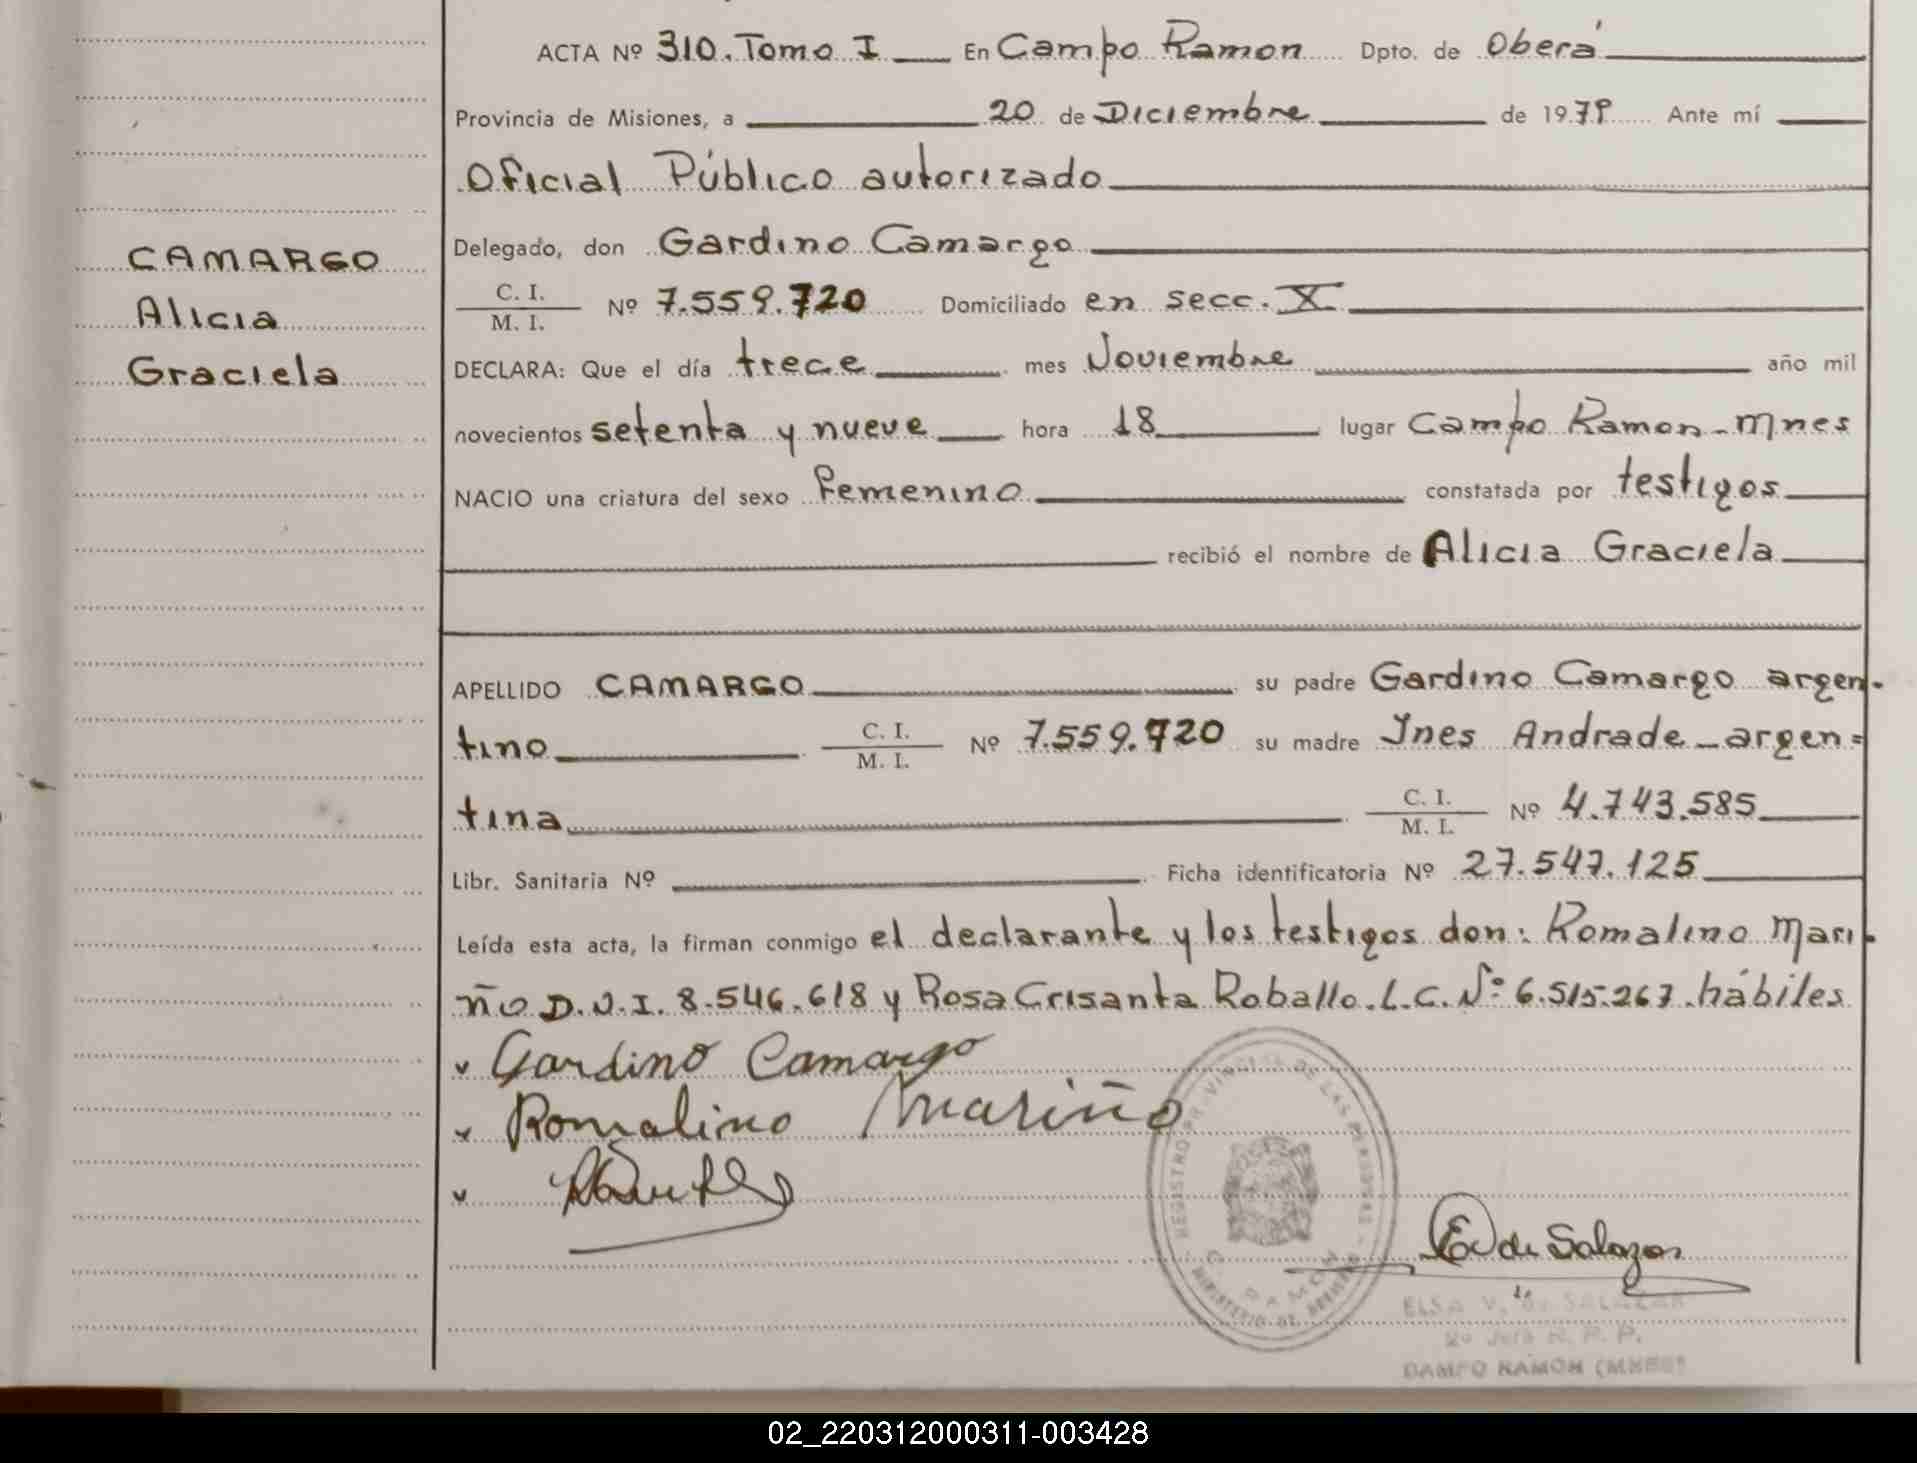 ACTA Nº 310. Tomo I En Campo Ramon Dpto. de Oberá
Provincia de Misiones, a 20 de Diciembre de 1979 Ante mí
Oficial Público autorizado
Delegado, don Gardino Camargo
C. I.
M. I. Nº 7.559.720 Domiciliado en secc. X
DECLARA: Que el día trece mes Noviembre año mil
novecientos setenta y nueve hora 18 lugar Campo Ramon - Mnes
NACIO una criatura del sexo femenino constatada por testigos
recibió el nombre de Alicia Graciela
CAMARGO
Alicia
Graciela
APELLIDO CAMARGO su padre Gardino Camargo argen-
tino C. I.
M. I. Nº 7.559.720 su madre Ines Andrade - argen=
tina C. I.
M. I. Nº 4.743.585
Libr. Sanitaria Nº Ficha identificatoria Nº 27.547.125
Leída esta acta, la firman conmigo el declarante y los testigos don: Romalino Mari-
ño D.N.I. 8.546.618 y Rosa Crisanta Roballo. L.C. Nº 6.515.267. hábiles
v Gardino Camargo
v Romalino Mariño
v
REGISTRO PROVINCIAL DE LAS PERSONAS
C. RAMON
MINISTERIO DE GOBIERNO
E V de Salazar
ELSA V. de SALAZAR
R. P. P.
CAMPO RAMON (MNES)
02_220312000311-003428